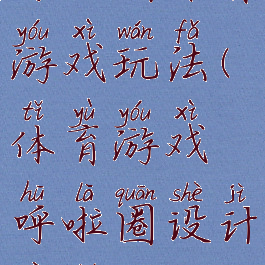 yóu xì wán fǎ
游戏玩法(
tǐ yù yóu xì
体育游戏
hū lā quān shè jì
呼啦圈设计